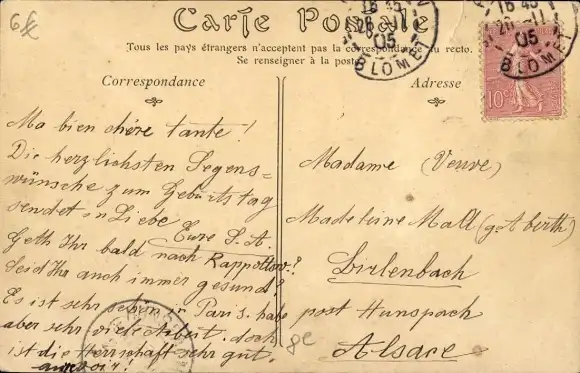 6
Carte Postale
Tous les pays étrangers n'acceptent pas la correspondance au recto.
Se renseigner à la poste
Correspondance
Adresse
16 45
26 - 11
05
BLOMET
16 45
26 - 11
05
BLOMET
10c
Ma bien chère tante!
Die herzlichsten Segens=
wünsche zum Geburtstag
sendet in Liebe
Eure S. A.
Geht Ihr bald nach Rappoltsw.?
Seid Ihr auch immer gesund?
Es ist sehr schön in Paris. habe
aber sehr viele Arbeit. doch
ist die Herrschaft sehr gut.
au revoir!
Madame (Veuve)
Madeleine Mall (g. Aberth)
Birlenbach
post Hunspach
Alsace